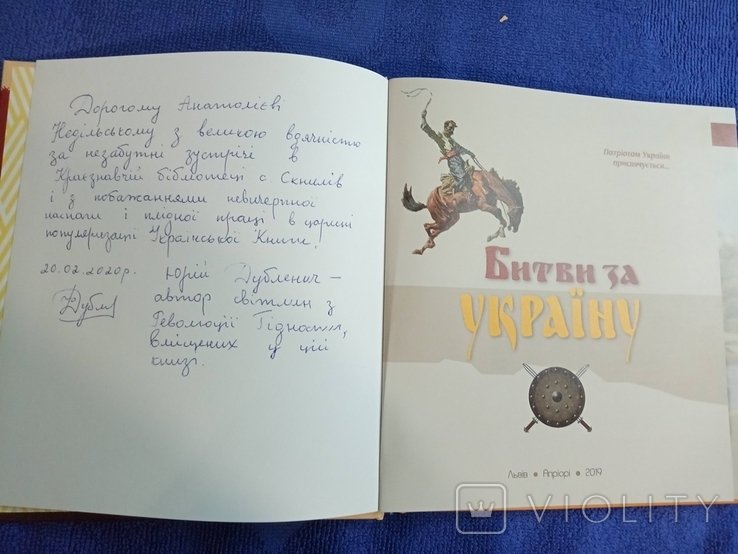 Дорогому Анатолієві
Недільському з великою вдячністю
за незабутні зустрічі в
Краєзнавчій бібліотеці с Скнилів
і з побажаннями невичерпної
наснаги і плідної праці в царині
популяризації Української Книги!
20.02.2020р. Юрій Дубленич –
автор світлин з
Революції Гідности,
вміщених у цій
книзі.
Дубл
Патріотам України
присвячується...
Битви за
УКРАЇНУ
Львів • Апріорі • 2019
VIOLITY